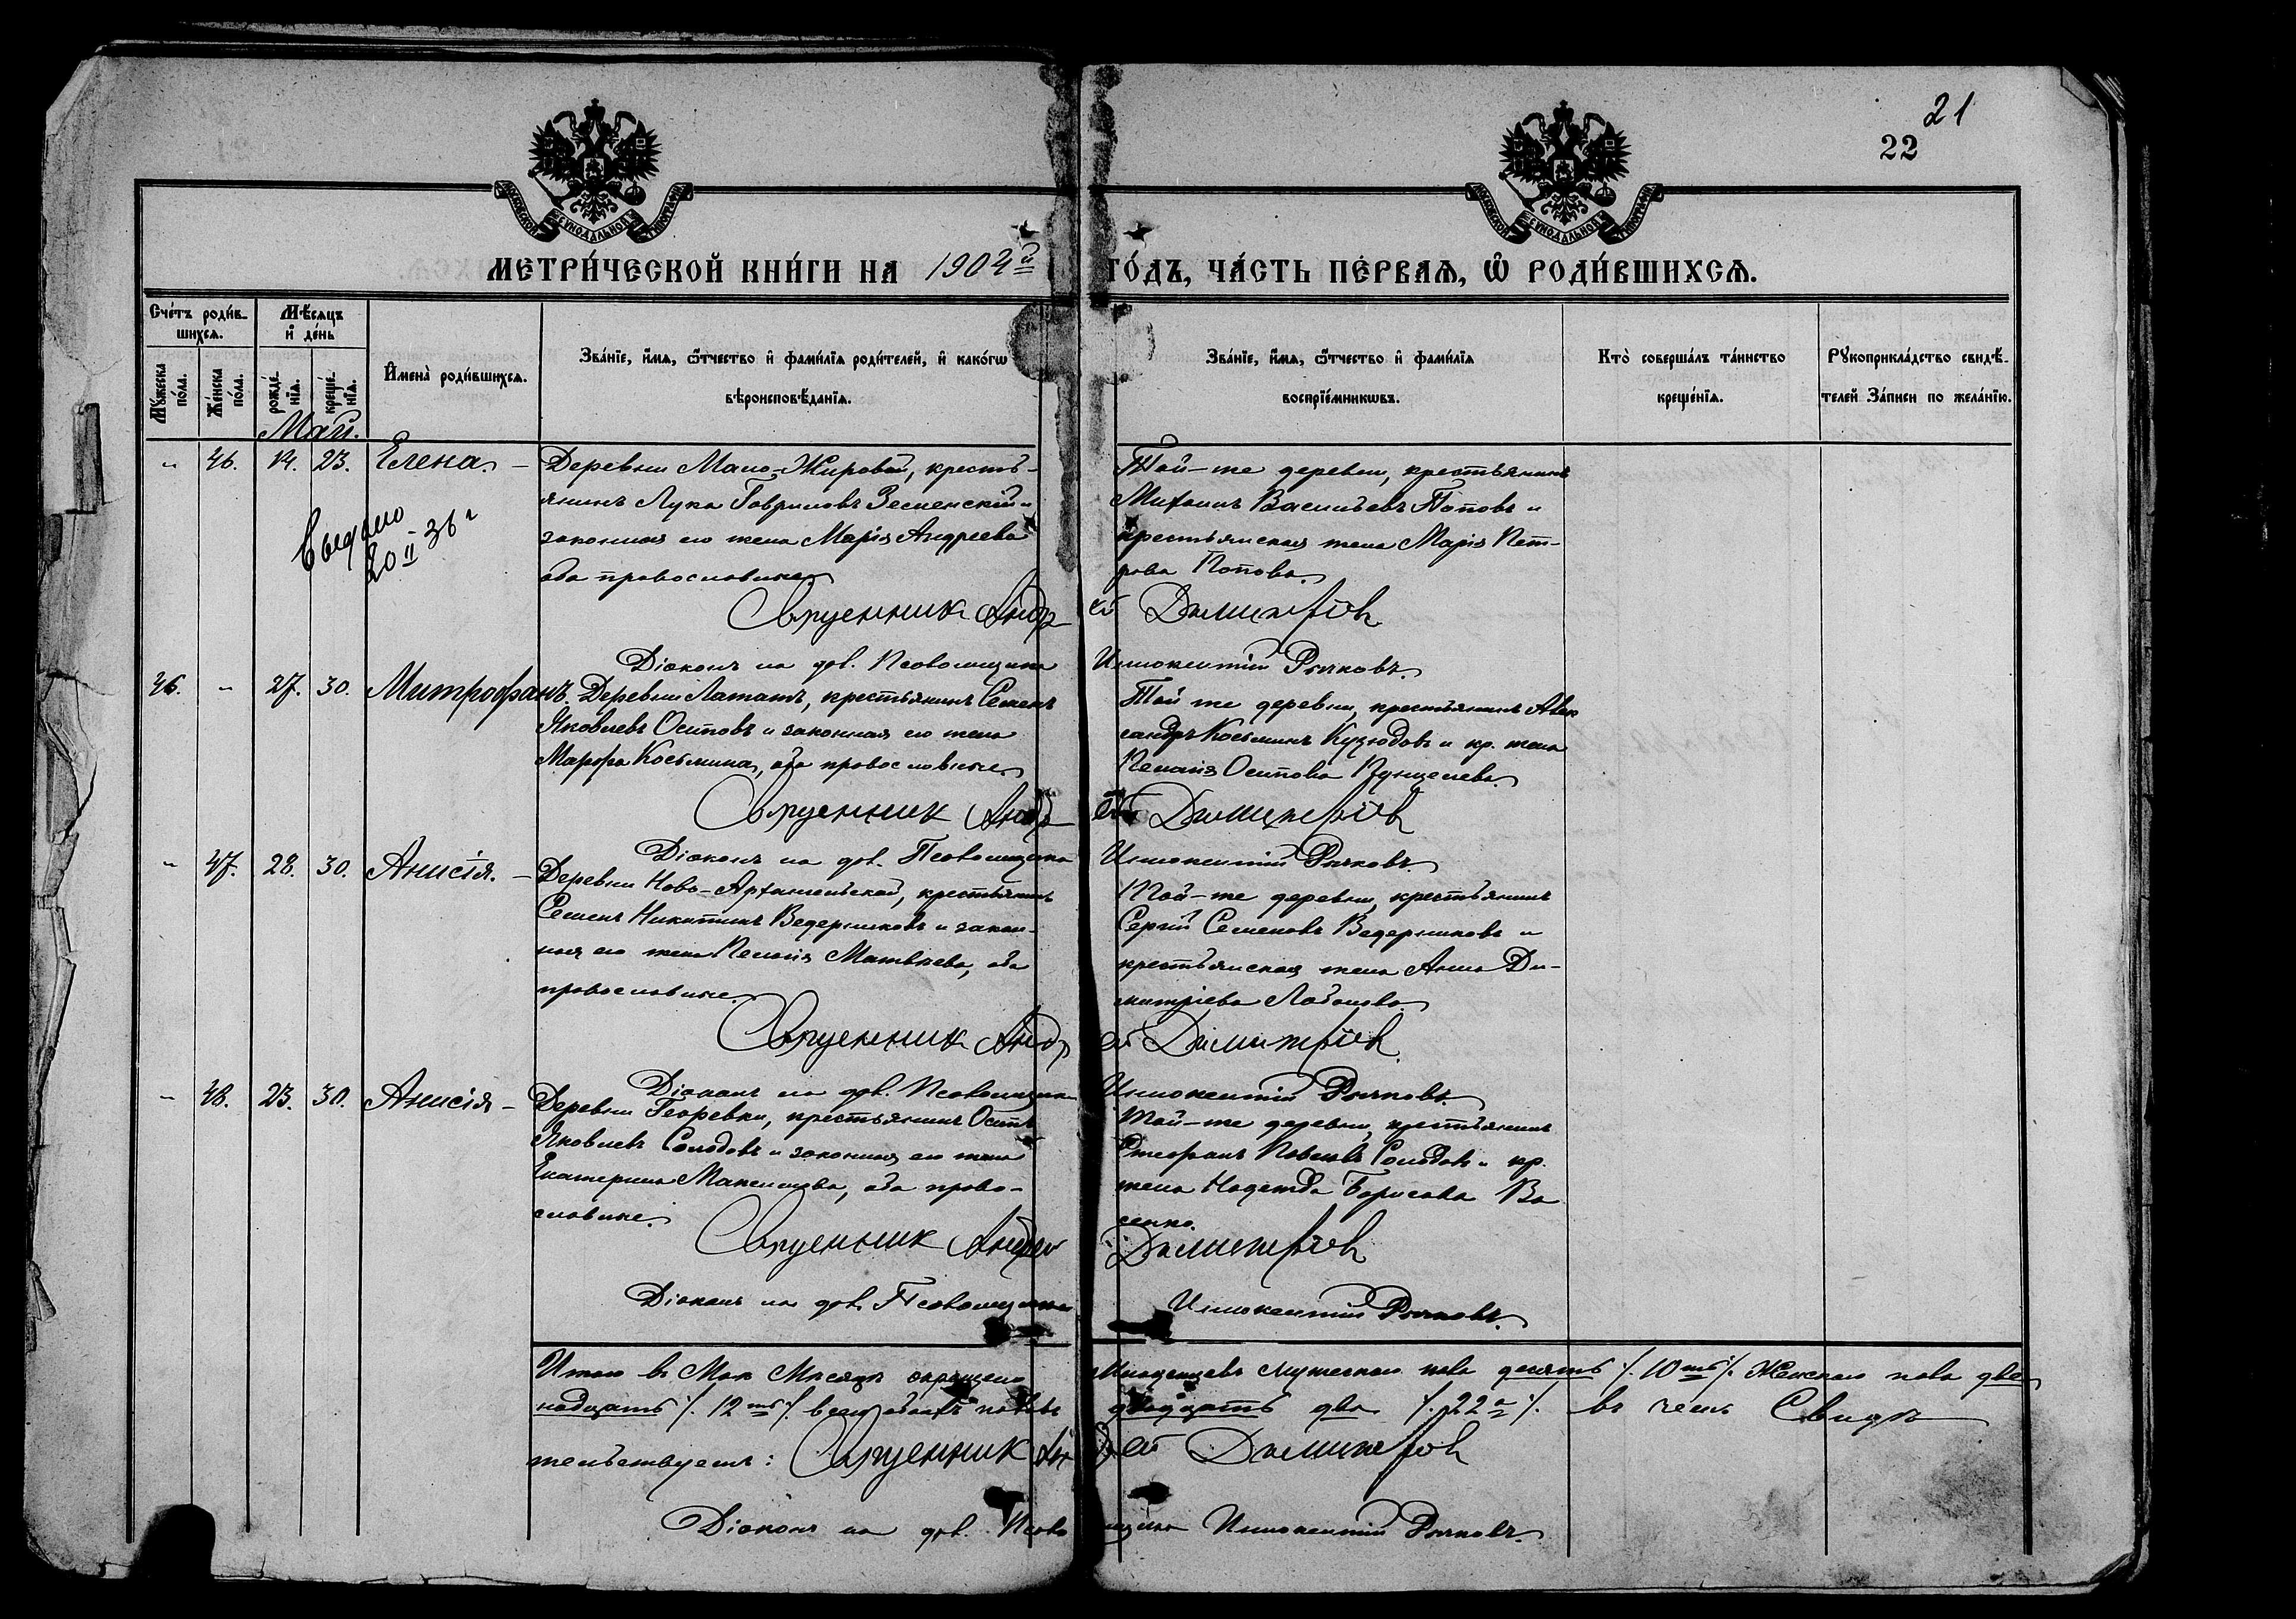 21
22
МЕТРИ́ЧЕСКОЙ КНИ́ГИ НА 1904й ГО́ДЪ, ЧА́СТЬ ПЕ́РВАѦ, Ѿ РОДИ́ВШИХСѦ.
Сче́тъ роди́в-
шихсѧ.
Мꙋжеска по́ла.
Же́нска по́ла.
Мѣ́сѧцъ
и҆ де́нь
рожде́нїѧ.
креще́нїѧ.
И҆мена̀ роди́вшихсѧ.
Зва́нїе, и҆́мѧ, ѻ҆́тчество и҆ фами́лїѧ роди́телей, и҆ како́гѡ
вѣроисповѣ́данїѧ.
Зва́нїе, и҆́мѧ, ѻ҆́тчество и҆ фами́лїѧ
воспрїе́мникѡвъ.
Кто̀ соверша́лъ та́инство
креще́нїѧ.
Рꙋкоприкла́дство свидѣ́-
телей За́писи по жела́нїю.
Май.
" 46. 14. 23. Елена. –
Деревни Мало-Жировой, кресть-
янинъ Лука Гавриловъ Зеленскій и
законная его жена Марія Андреева
оба православные.
Той-же деревни, крестьянинъ
Михаилъ Васильевъ Поповъ и
крестьянская жена Марія Пет-
рова Попова.
Выдано
20 II – 36 г
Священник Андрей Димитріев
Діаконъ на дол. Псаломщика Иннокентій Рычковъ.
46. " 27. 30. Митрофанъ.
Деревни Лататъ, крестьянинъ Семенъ
Яковлевъ Осиповъ и законная его жена
Марфа Косьмина, оба православные.
Той же деревни, крестьянинъ Алек
сандръ Косьминъ и кр. жена
Пелагія Осипова
Священник Андрей Димитріев
Діаконъ на дол. Псаломщика Иннокентій Рычковъ.
" 47. 28. 30. Анисія. –
Деревни Ново-Архангельской, крестьянинъ
Семенъ Никитинъ Ведерниковъ и закон-
ная его жена Пелагія Матвѣева, оба
православные.
Той-же деревни, крестьянинъ
Сергій Семеновъ Ведерниковъ и
крестьянская жена Анна Ди-
митріева Лобанова.
Священник Андрей Димитріев
Діаконъ на дол. Псаломщика Иннокентій Рычковъ.
" 48. 23. 30. Анисія –
Деревни Георевки, крестьянинъ Осипъ
Яковлевъ Солодовъ и законная его жена
Екатерина Максимова, оба право-
славные.
Той-же деревни, крестьянинъ
Стефанъ Солодовъ и кр.
жена Надежда Борисова Ва
сенко.
Священник Андрей Димитріев
Діаконъ на дол. Псаломщика Иннокентій Рычковъ.
Итого въ Маѣ Мѣсяцѣ окрещено младенцевъ мужескаго пола десять /. 10ть /. Женскаго пола две
надцать /. 12ть /. всего обоего пола двадцать два /. 22а /. въ чемъ Свидѣ
тельствуемъ: Священник Андрей Димитріев
Діаконъ на дол. Псаломщика Иннокентій Рычковъ.